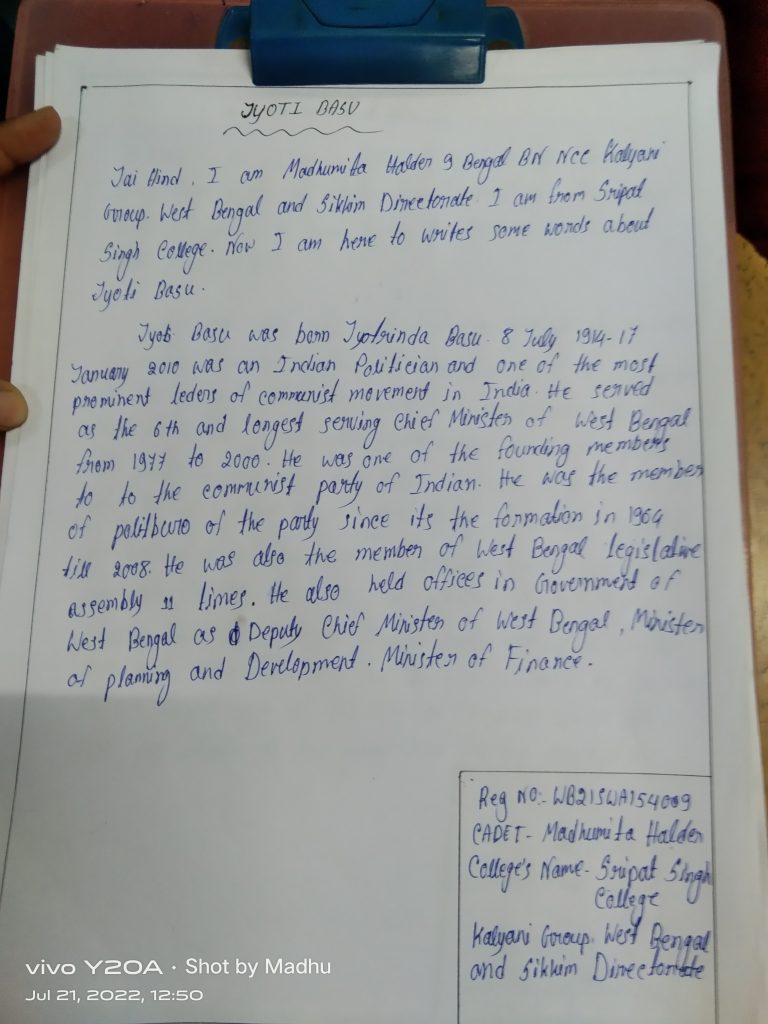 JYOTI BASU
Jai Hind. I am Madhumita Halder 9 Bengal BN NCC Kalyani
Group. West Bengal and Sikkim Directorate. I am from Sripat
Singh College. Now I am here to writes some words about
Jyoti Basu.
Jyoti Basu was born Jyotrinda Basu. 8 July 1914-17
January 2010 was an Indian Politician and one of the most
prominent leders of communist movement in India. He served
as the 6th and longest serving Chief Minister of West Bengal
from 1977 to 2000. He was one of the founding members
to to the communist party of Indian. He was the member
of politburo of the party since its the formation in 1964
till 2008. He was also the member of West Bengal legislative
assembly 11 times. He also held offices in Government of
West Bengal as Deputy Chief Minister of West Bengal, Minister
of planning and Development. Minister of Finance.
Reg NO:- WB21SWA154009
CADET- Madhumita Halder
College's Name- Sripat Singh
College
Kalyani Group. West Bengal
and Sikkim Directorate
vivo Y20A · Shot by Madhu
Jul 21, 2022, 12:50